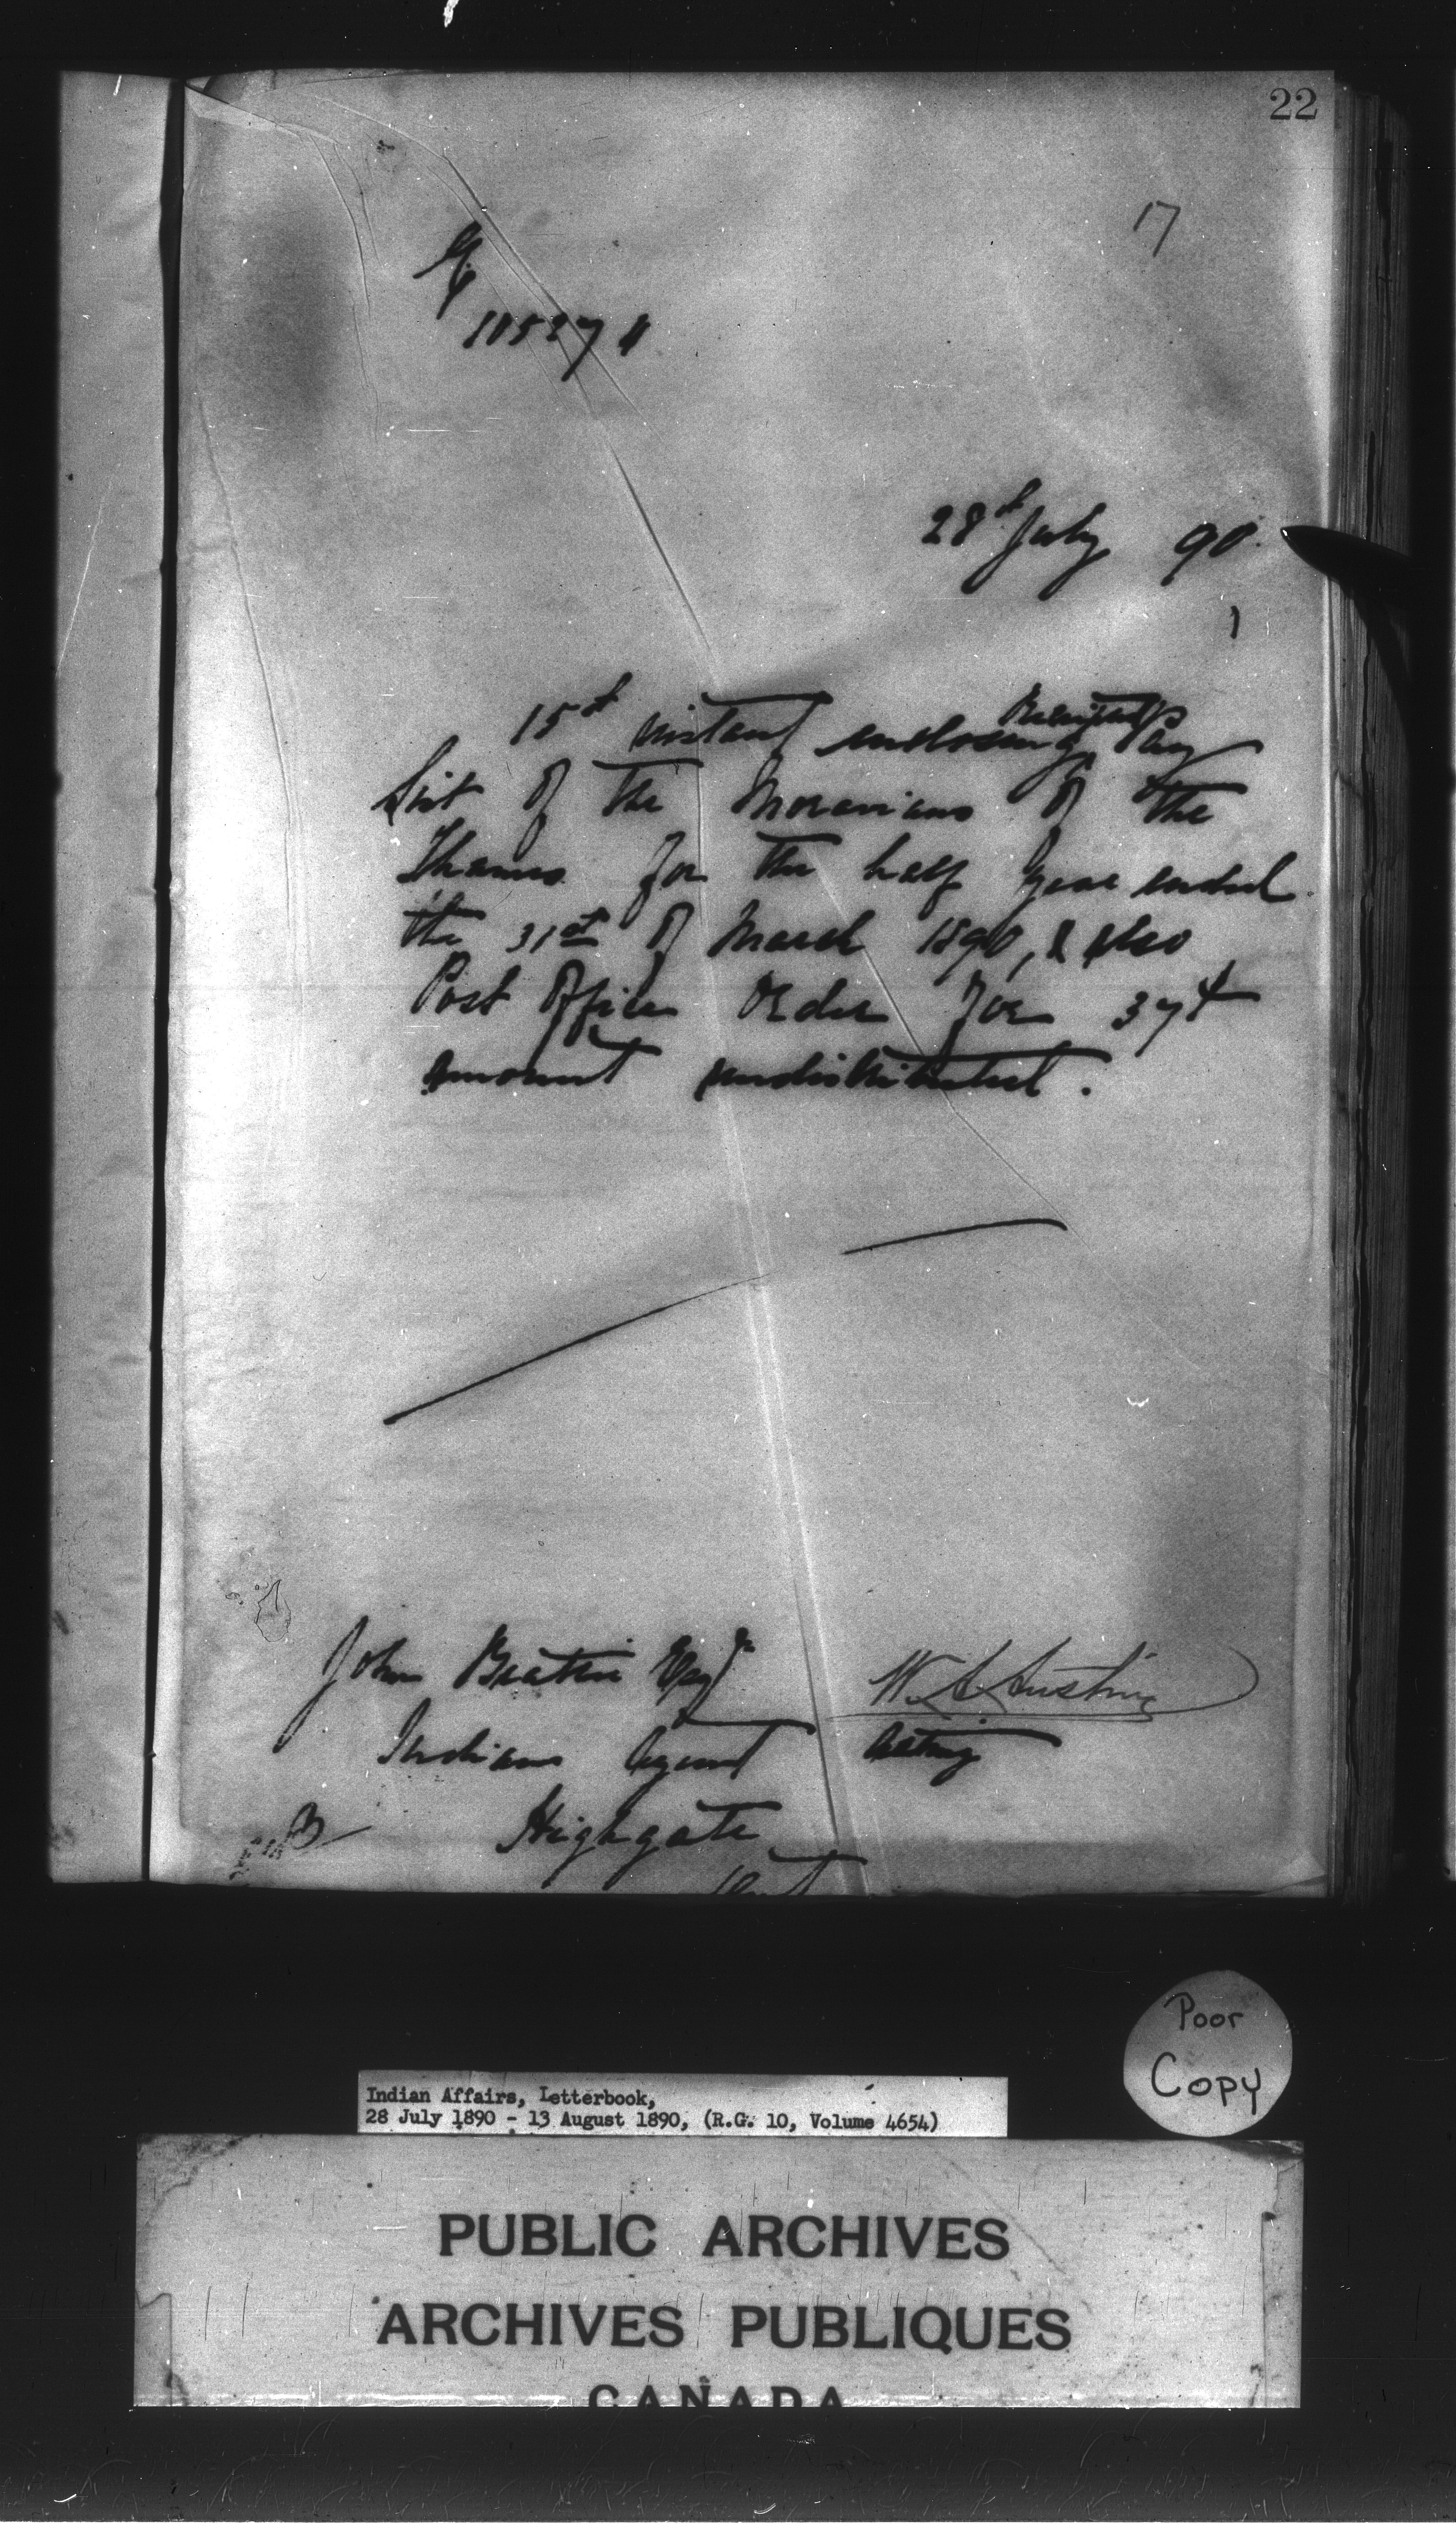 22
17
28th July 90.
1
15th instant enclosing Receipted Pay
List of the Moravians of the
Thames for the half year ended
the 31st of March 1890, & also
Post Office Order for 37¢
amount undistributed.
John Beattie Esqr
W. A. Austin
Indian Agent
Acting
Highgate
Ont
Poor
Copy
Indian Affairs, Letterbook,
28 July 1890 - 13 August 1890, (R.G. 10, Volume 4654)
PUBLIC ARCHIVES
ARCHIVES PUBLIQUES
CANADA